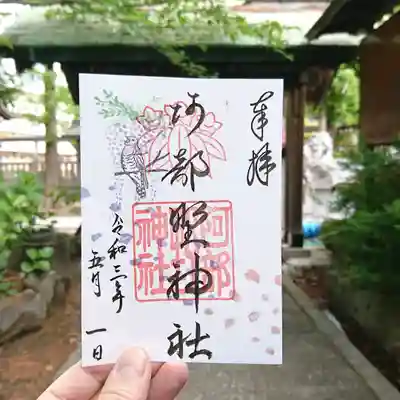 奉拝
阿部野神社
阿部野神社
令和三年
五月 一日